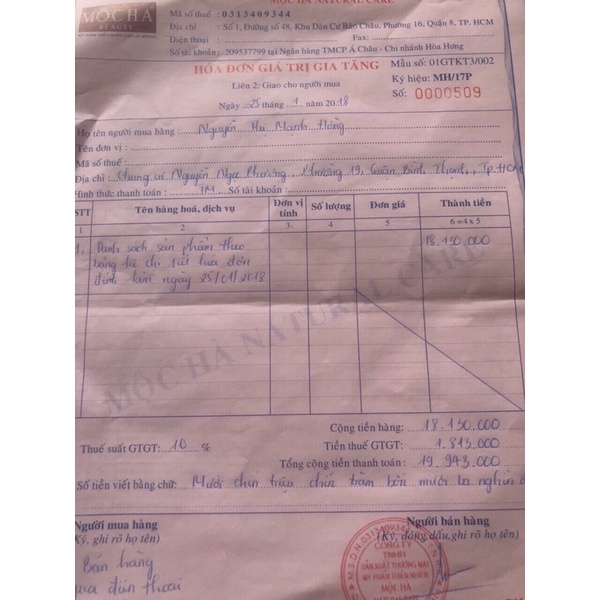 MỘC HÀ NATURAL CARE
MỘC HÀ
BEAUTY
Mã số thuế : 0313409344
Địa chỉ : Số 1, Đường số 48, Khu Dân Cư Bảo Châu, Phường 16, Quận 8, TP. HCM
Điện thoại : Fax:
Số tài khoản : 209537799 tại Ngân hàng TMCP Á Châu - Chi nhánh Hòa Hưng
HÓA ĐƠN GIÁ TRỊ GIA TĂNG
Mẫu số: 01GTKT3/002
Liên 2: Giao cho người mua
Ký hiệu: MH/17P
Ngày 25 tháng 1 năm 2018
Số: 0000509
Họ tên người mua hàng : Nguyễn Thị Mạnh Hồng
Tên đơn vị :
Mã số thuế :
Địa chỉ : Chung cư Nguyễn Ngọc Phương, Phường 19, Quận Bình Thạnh, Tp. HCM
Hình thức thanh toán : TM Số tài khoản :
STT Tên hàng hoá, dịch vụ Đơn vị tính Số lượng Đơn giá Thành tiền
1 2 3 4 5 6 = 4 x 5
1. Danh sách sản phẩm theo 18.130.000
bảng kê chi tiết hóa đơn
đính kèm ngày 25/01/2018
MỘC HÀ NATURAL CARE
Cộng tiền hàng: 18.130.000
Thuế suất GTGT: 10 % Tiền thuế GTGT: 1.813.000
Tổng cộng tiền thanh toán : 19.943.000
Số tiền viết bằng chữ: Mười chín triệu chín trăm bốn mươi ba nghìn đ
Người mua hàng Người bán hàng
(Ký, ghi rõ họ tên) (Ký, đóng dấu, ghi rõ họ tên)
Bán hàng
qua điện thoại
M.S.D.N:0313409344
CÔNG TY
TNHH
SẢN XUẤT THƯƠNG MẠI
MỸ PHẨM THIÊN NHIÊN
MỘC HÀ